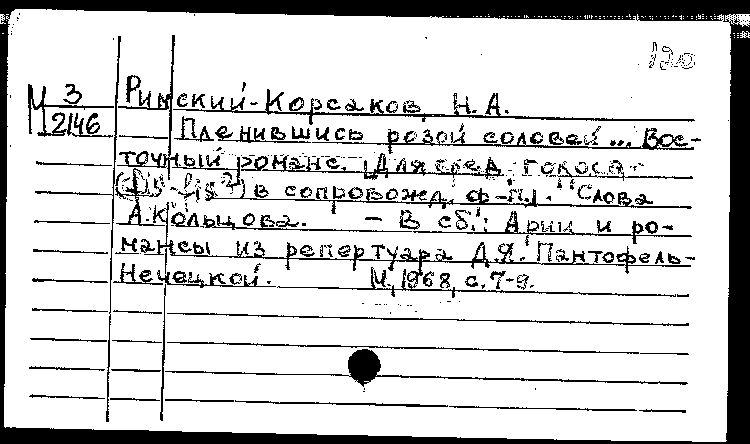 120
М 3 Римский-Корсаков, Н.А.
12146 Пленившись розой соловей... Вос-
точный романс. Для сред. голоса
в сопровожд. ф-п. Слова
А.Кольцова. - В сб.: Арии и ро-
мансы из репертуара Д.Я. Пантофель-
Нечецкой. М., 1968, с. 7-9.